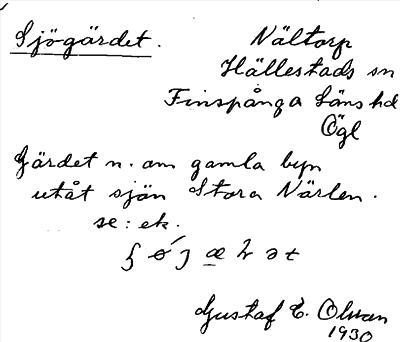 Sjögärdet.
Nältorp
Hällestads sn
Finspånga läns hd
Ögl
Gärdet n. om gamla byn
utåt sjön Stora Närlen.
se: ek.
Gustaf E. Olsson
1930